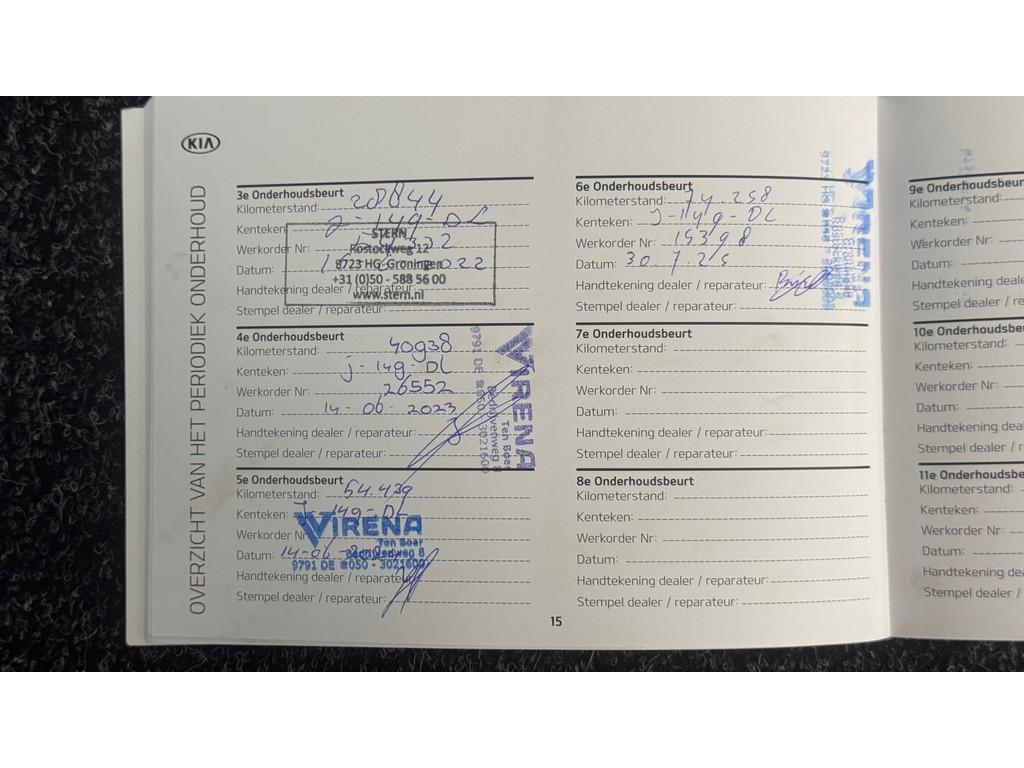 KIA
OVERZICHT VAN HET PERIODIEK ONDERHOUD
3e Onderhoudsbeurt
Kilometerstand: 20844
Kenteken: J-149-DL
Werkorder Nr:
Datum: 2022
Handtekening dealer / reparateur:
Stempel dealer / reparateur:
STERN
Rostockweg 12
9723 HG Groningen
+31 (0)50 - 588 56 00
www.stern.nl
4e Onderhoudsbeurt
Kilometerstand: 40938
Kenteken: J-149-DL
Werkorder Nr: 26552
Datum: 14-06-2023
Handtekening dealer / reparateur:
Stempel dealer / reparateur:
VIRENA
Ten Boer
Bedrijvenweg 8
9791 DE ☎050 - 3021600
5e Onderhoudsbeurt
Kilometerstand: 54.439
Kenteken: J-149-DL
Werkorder Nr:
Datum: 14-06-
Handtekening dealer / reparateur:
Stempel dealer / reparateur:
VIRENA
Ten Boer
Bedrijvenweg 8
9791 DE ☎050 - 3021600
6e Onderhoudsbeurt
Kilometerstand: 74.258
Kenteken: J-149-DL
Werkorder Nr: 15398
Datum: 30.7.25
Handtekening dealer / reparateur:
Stempel dealer / reparateur:
VIRENA
9723 HG
7e Onderhoudsbeurt
Kilometerstand:
Kenteken:
Werkorder Nr:
Datum:
Handtekening dealer / reparateur:
Stempel dealer / reparateur:
8e Onderhoudsbeurt
Kilometerstand:
Kenteken:
Werkorder Nr:
Datum:
Handtekening dealer / reparateur:
Stempel dealer / reparateur:
15
9e Onderhoudsbeur
Kilometerstand:
Kenteken:
Werkorder Nr:
Datum:
Handtekening deale
Stempel dealer / r
10e Onderhoudsbeu
Kilometerstand:
Kenteken:
Werkorder Nr:
Datum:
Handtekening deale
Stempel dealer /
11e Onderhoudsbe
Kilometerstand:
Kenteken:
Werkorder Nr:
Datum:
Handtekening dea
Stempel dealer /